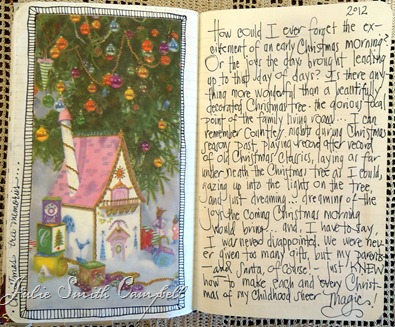 ...mas tree memories...
Julie Smith Campbell
2012
How could I ever forget the ex-
citement of an early Christmas morning?
Or the joys the days brought leading
up to that day of days? Is there any-
thing more wonderful than a beautifully
decorated Christmas tree - the glorious focal
point of the family living room... I can
remember countless nights during Christmas
seasons past, playing record after record
of old Christmas classics, laying as far
underneath the Christmas tree as I could,
gazing up into the lights on the tree,
and just dreaming... dreaming of the
joys the coming Christmas morning
would bring... and, I have to say,
I was never disappointed. We were nev-
er given too many gifts, but my parents
- and Santa, of course! - just KNEW
how to make each and every Christ-
mas of my childhood sheer Magic!